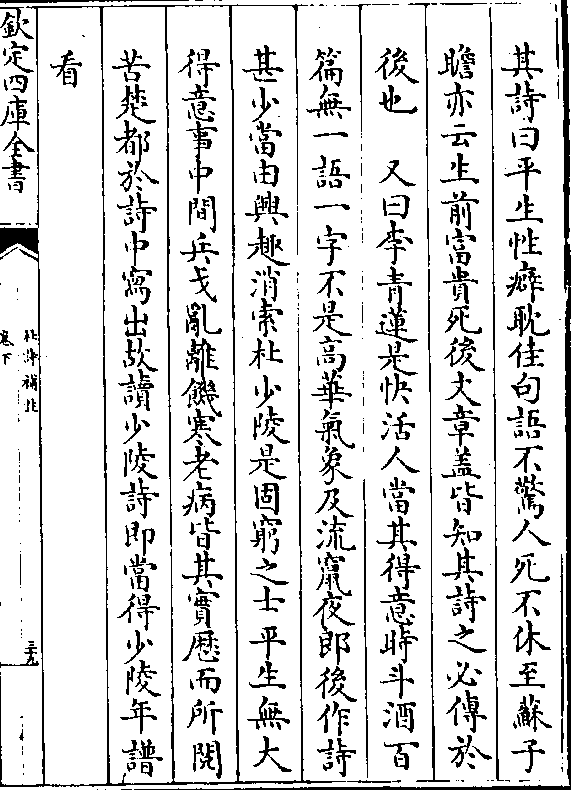 其詩曰平生性癖耽佳句語不驚人死不休至蘇子
瞻亦云生前富貴死後文章蓋皆知其詩之必傳於
後也　又曰李青蓮是快活人當其得意時斗酒百
篇無一語一字不是高華氣象及流竄夜郎後作詩
甚少當由興趣消索杜少陵是固窮之士平生無大
得意事中間兵戈亂離饑寒老病皆其實歷而所閱
苦楚都於詩中寫出故讀少陵詩即當得少陵年譜
看
欽定四庫全書
卷下
三十九